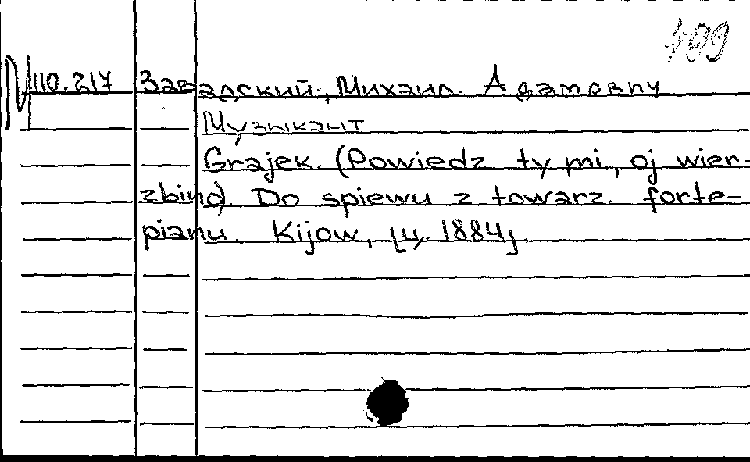 109
М 110.217 Завадский, Михаил Адамович
Музыкант
Grajek. (Powiedz ty mi, oj wier-
zbino). Do spiewu z towarz. forte-
pianu. Kijow, [ц. 1884]